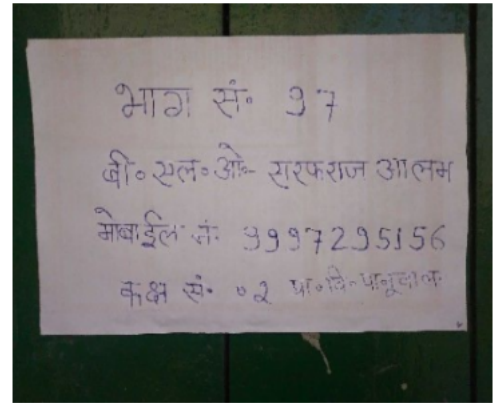 भाग सं० 97
बी०एल०ओ०- सरफराज आलम
मोबाईल सं० 9997295156
कक्ष सं० ०२ प्रा०वि०